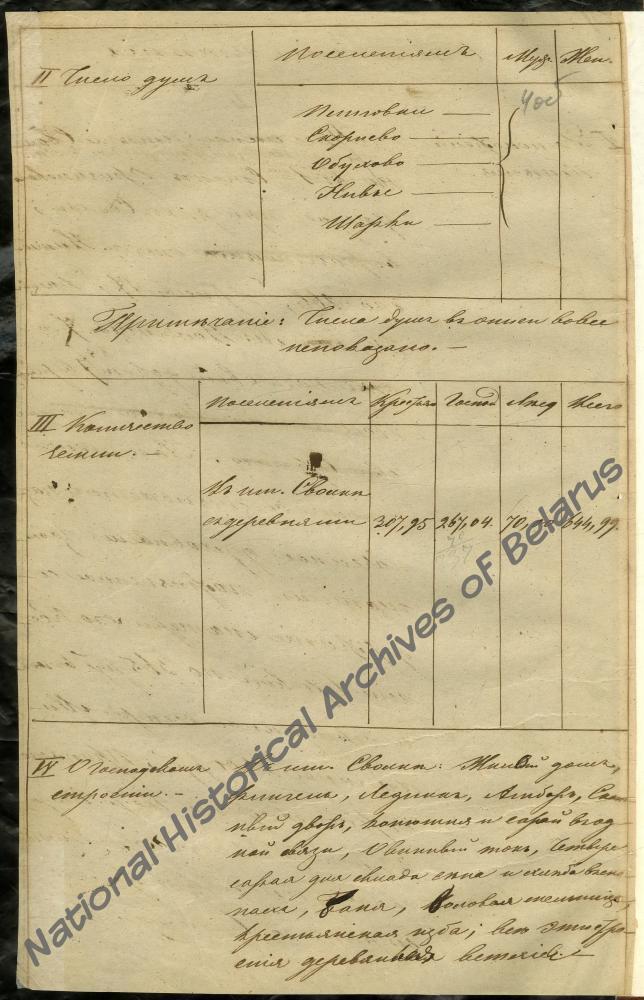 II Число душъ
Поселеніямъ Муж. Жен.
Петровки
Скориево
Обухово
Нивье
Шарки
Примѣчаніе: Числа душъ въ описи вовсе
непоказано. –
III Количество
земли. –
Поселеніямъ Крестья Господ Лѣсу Всего
Въ им. Сволна
съ деревнями 307,95 267,04. 70, 644,99
IV О господскомъ
строеніи. –
Въ им. Сволна: Жилой домъ,
Ледникъ, Амбаръ,
ный дворъ, конюшня и сарай въ од
ной связи, Овинный токъ, Четыре
сарая для склада сѣна и хлѣба въ
Баня, мельница,
крестьянская изба; все это стро
енія деревянныя ветхія.
National Historical Archives of Belarus